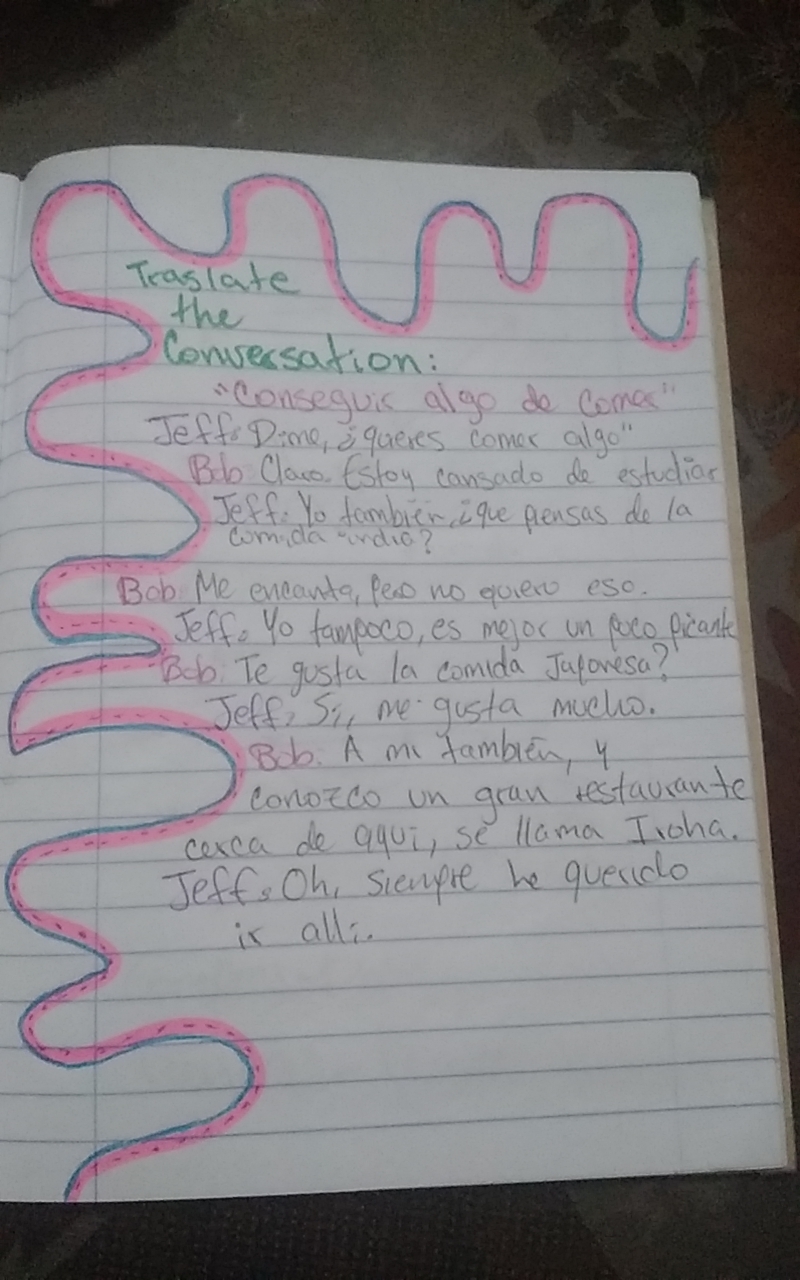 Traslate
the
Conversation:
"Conseguir algo de comer"
Jeff: Dime, ¿quieres comer algo"
Bob: Claro. Estoy cansado de estudiar
Jeff: Yo también, ¿que piensas de la
comida india?
Bob: Me encanta, Pero no quiero eso.
Jeff: Yo tampoco, es mejor un poco picante
Bob: Te gusta la comida Japonesa?
Jeff: Si, me gusta mucho.
Bob: A mi también, y
conozco un gran restaurante
cerca de aquí, se llama Iroha.
Jeff: Oh, siempre he querido
ir allí.